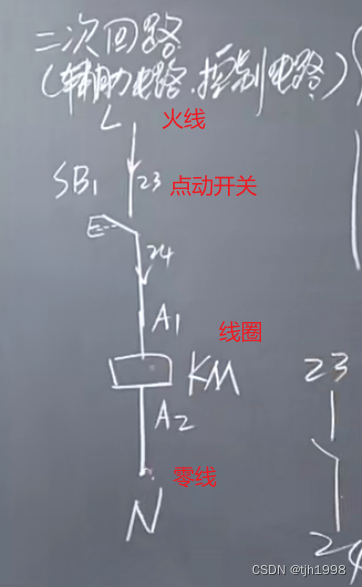 二次回路
(辅助电路、控制电路)
L 火线
SB1 23 点动开关
24
A1
线圈
KM
23
A2
零线
N
24
CSDN @tjh1998